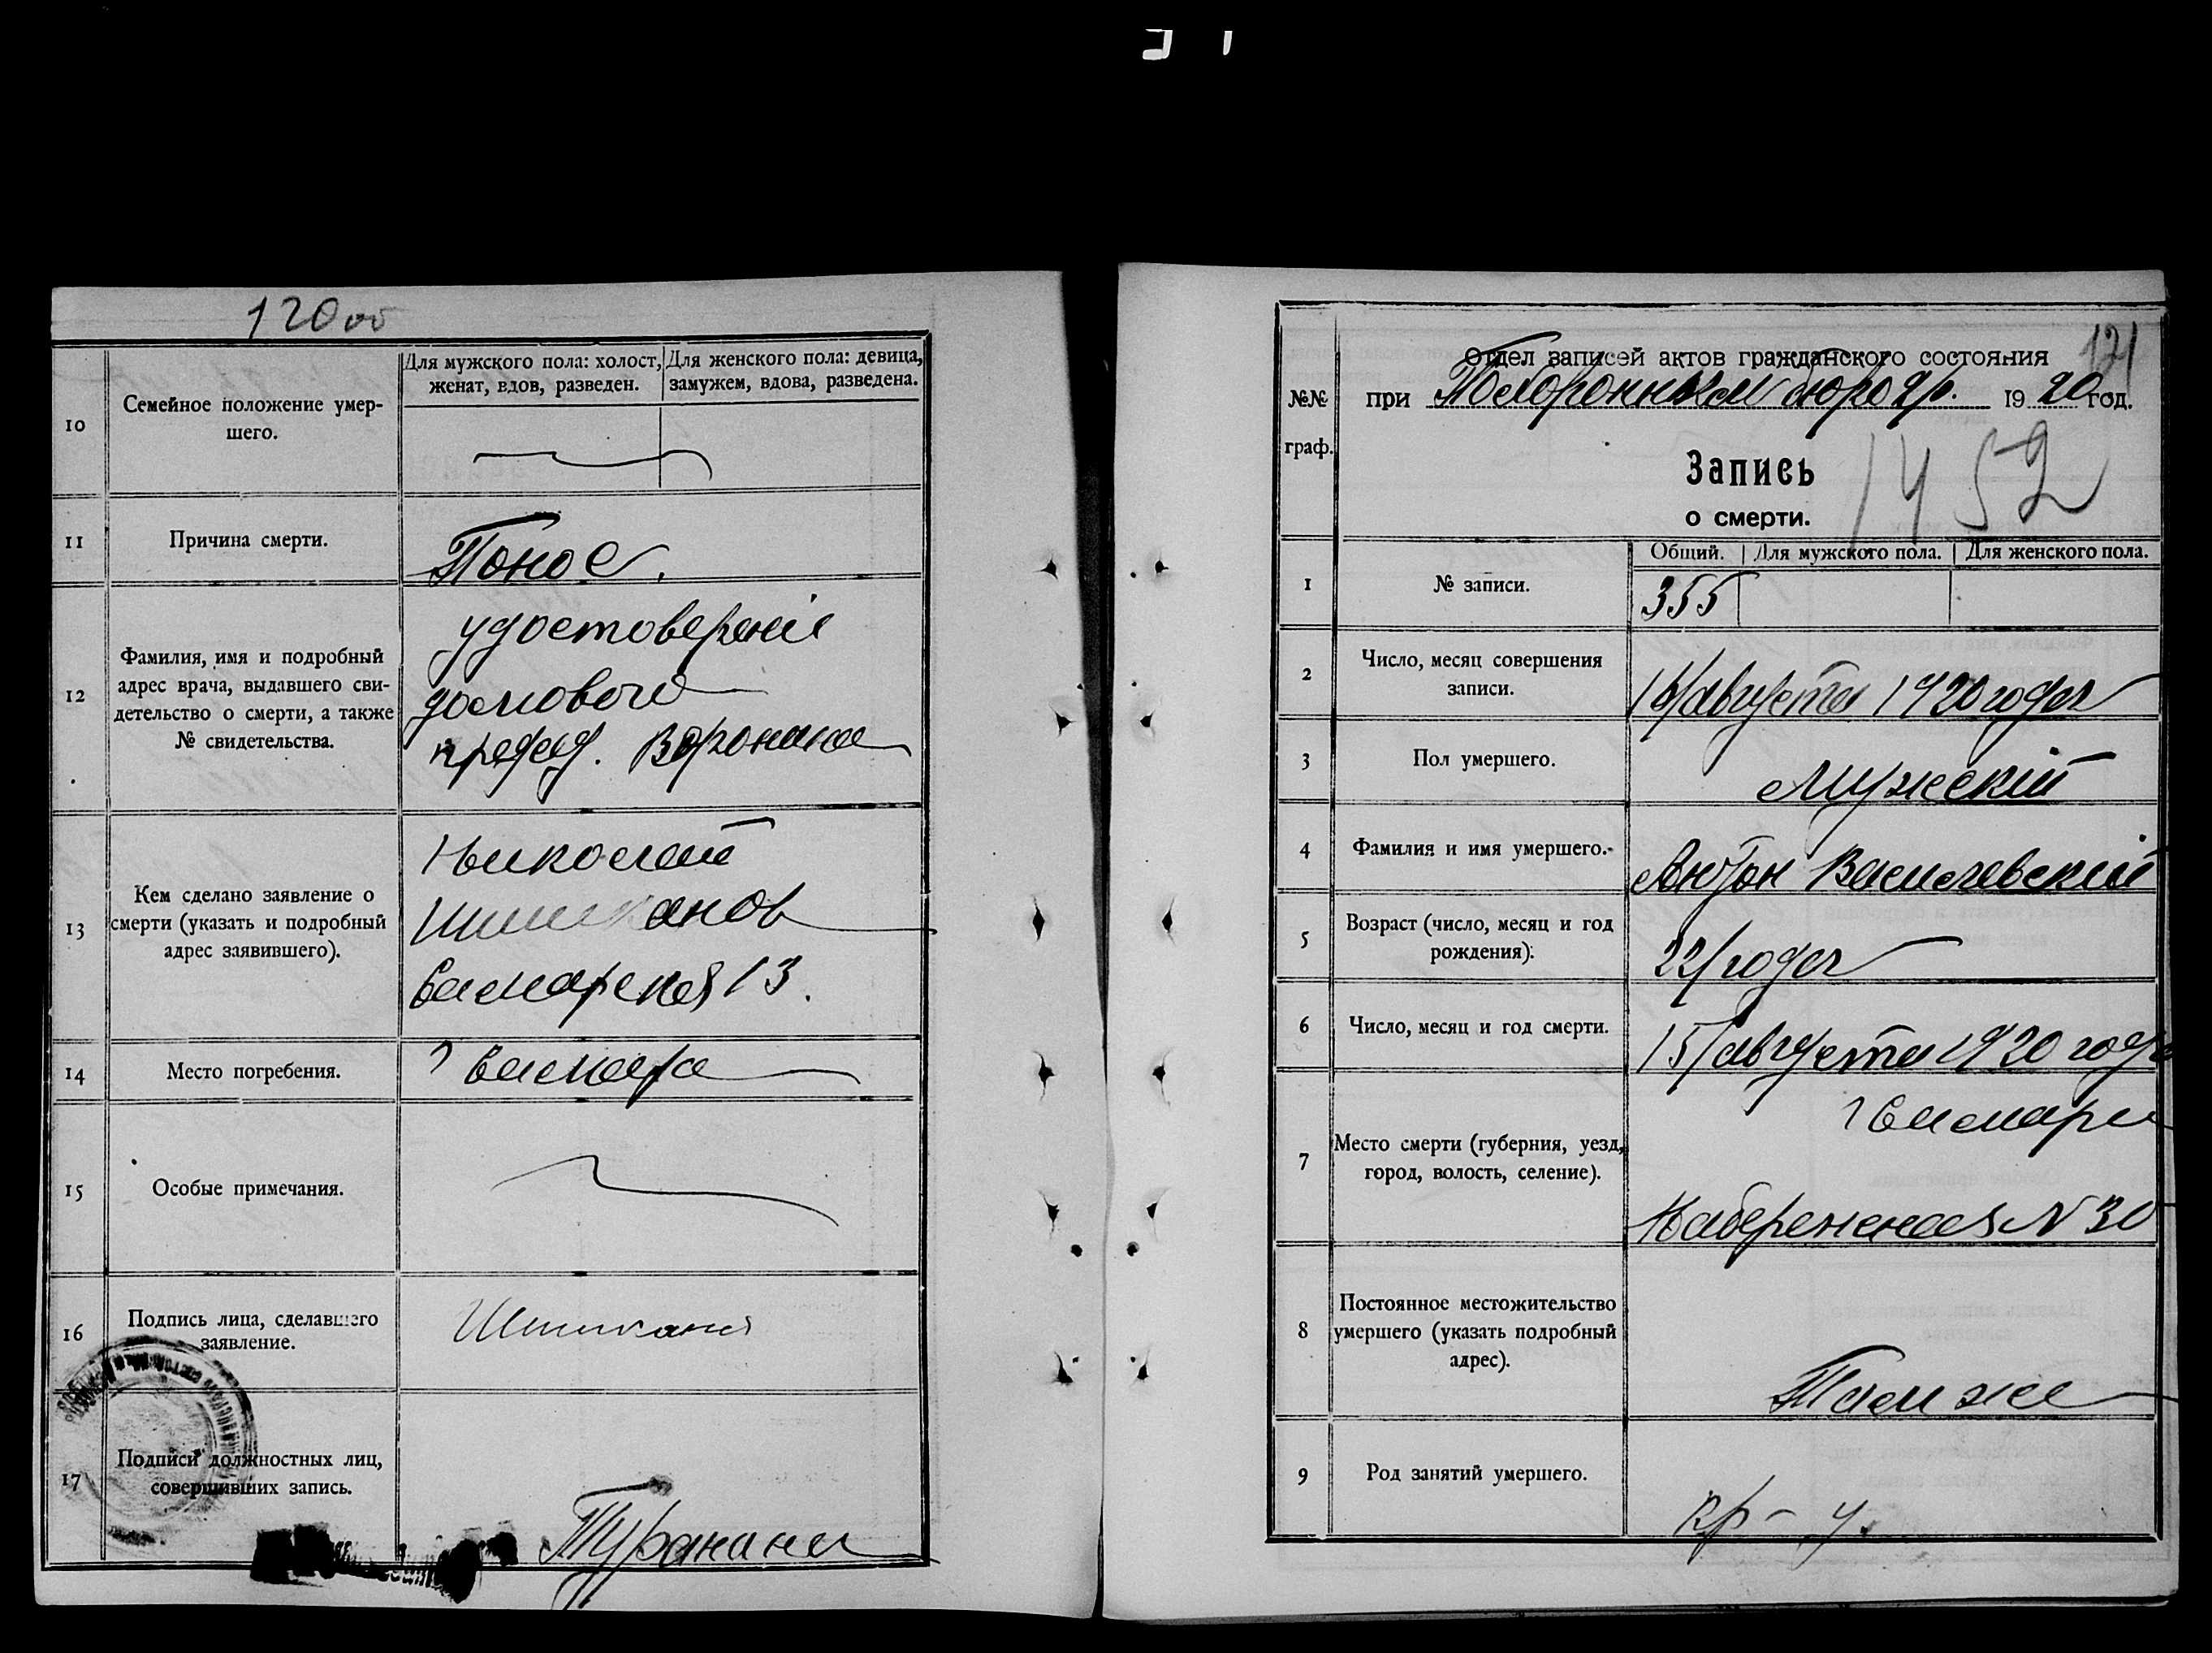 120 об
10
Семейное положение умер-
шего.
Для мужского пола: холост,
женат, вдов, разведен.
Для женского пола: девица,
замужем, вдова, разведена.
11
Причина смерти.
Понос.
12
Фамилия, имя и подробный
адрес врача, выдавшего сви-
детельство о смерти, а также
№ свидетельства.
удостоверенiе
домового
председ. Воронина
13
Кем сделано заявление о
смерти (указать и подробный
адрес заявившего).
Николай
Шишканов
Самарская 13.
14
Место погребения.
г Самара
15
Особые примечания.
16
Подпись лица, сделавшего
заявление.
17
Подписи должностных лиц,
совершивших запись.
121
Отдел записей актов гражданского состояния
№№
граф.
при Похоронным бюро гр. 1920 год.
Запись
о смерти.
1452
Общий. Для мужского пола. Для женского пола.
1
№ записи.
355
2
Число, месяц совершения
записи.
16/августа 1920 года
3
Пол умершего.
Мужскiй
4
Фамилия и имя умершего.
Антон Василевскiй
5
Возраст (число, месяц и год
рождения).
22/года
6
Число, месяц и год смерти.
15/августа 1920 года
7
Место смерти (губерния, уезд,
город, волость, селение).
г Самара
Набережная N 30
8
Постоянное местожительство
умершего (указать подробный
адрес).
Там же
9
Род занятий умершего.
кр-